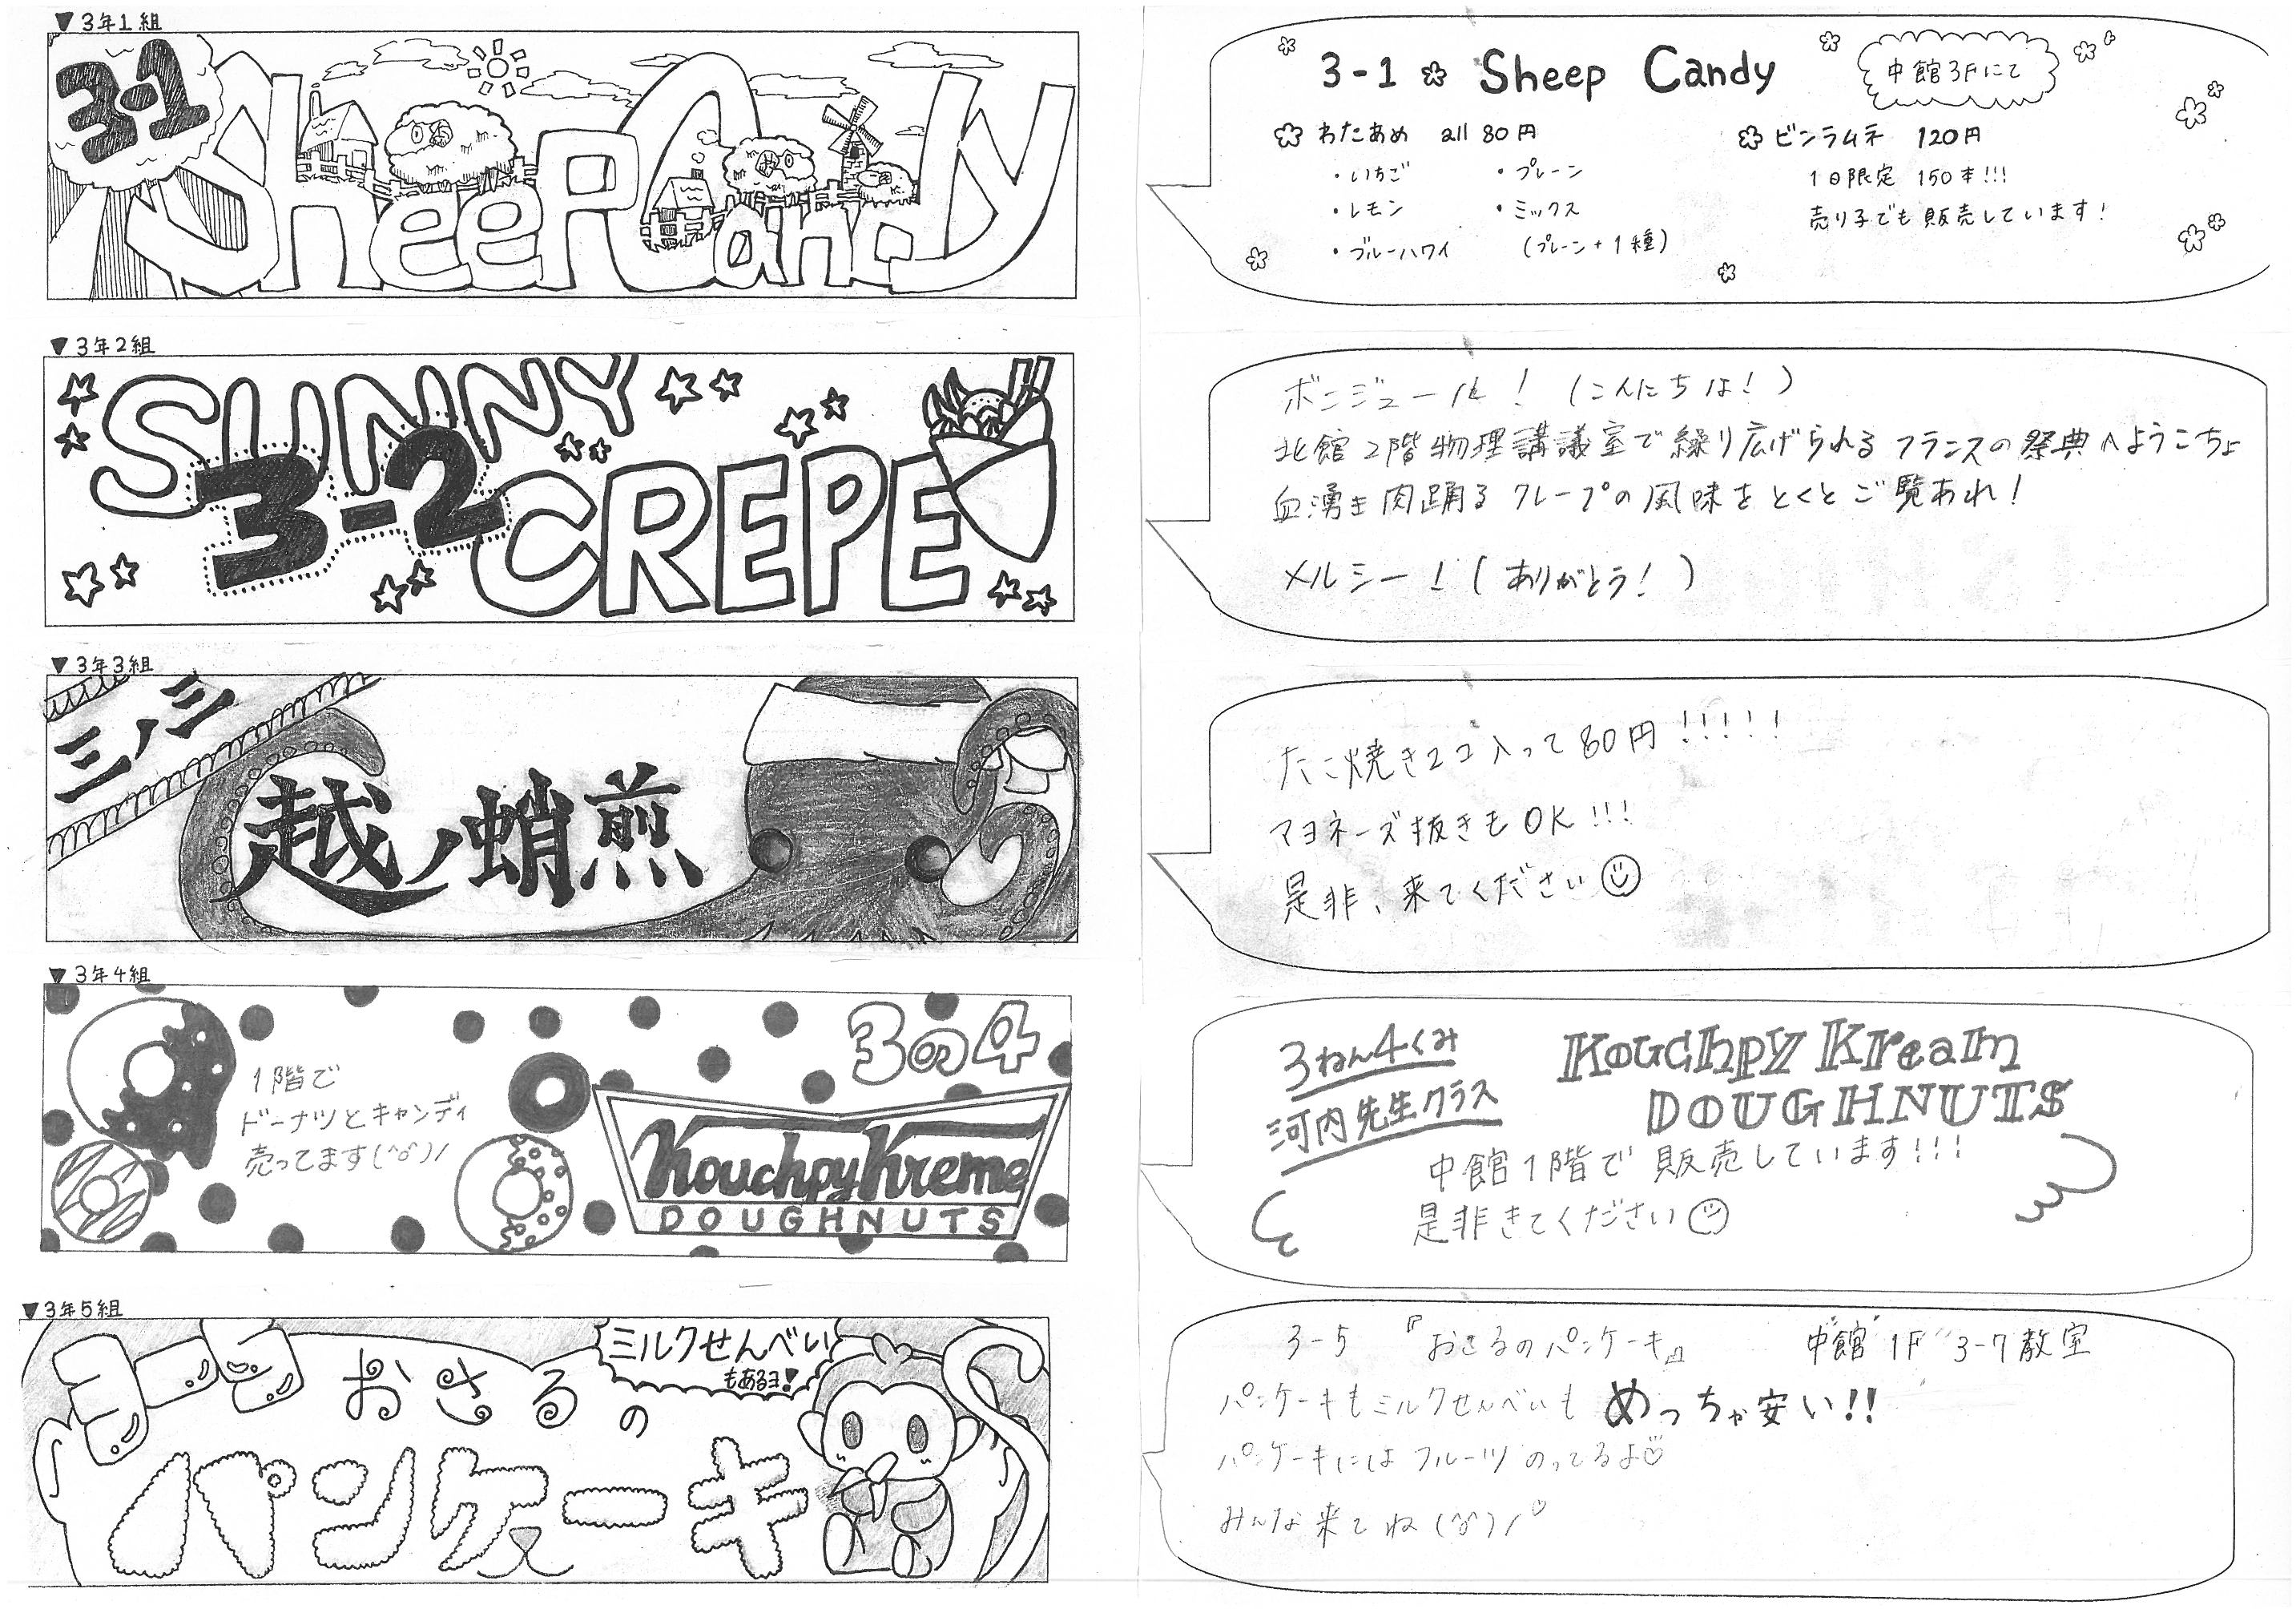 ▼3年1組
3-1
Sheep Candy
3-1 Sheep Candy
中館3Fにて
わたあめ all 80円
・いちご ・プレーン
・レモン ・ミックス
・ブルーハワイ (プレーン+1種)
ビンラムネ 120円
1日限定 150本!!!
売り子でも販売しています!
▼3年2組
SUNNY
3-2
CREPE
ボンジュール! (こんにちは!)
北館2階物理講議室で繰り広げられるフランスの祭典へようこちょ
血湧き肉踊るクレープの風味をとくとご覧あれ!
メルシー! (ありがとう!)
▼3年3組
三ノ三
越ノ蛸煎
たこ焼き2コ入って80円!!!!!
マヨネーズ抜きもOK!!!
是非、来てください☺
▼3年4組
3の4
1階で
ドーナツとキャンディ
売ってます(^o^)/
Kouchpy Kreme
DOUGHNUTS
3ねん4くみ
河内先生クラス
Kouchpy Kream
DOUGHNUTS
中館1階で販売しています!!!
是非きてください☺
▼3年5組
3-5
おさるの
パンケーキ
ミルクせんべい
もあるヨ!
3-5 『おさるのパンケーキ』 中館 1F 3-7教室
パンケーキもミルクせんべいも めっちゃ安い!!
パンケーキにはフルーツのってるよ♡
みんな来てね(^o^)/♡